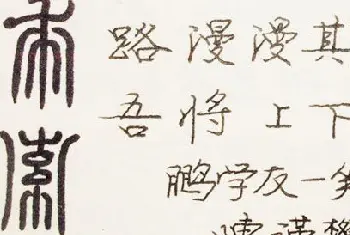 求索
路漫漫其
吾将上下
鹏学友一笑